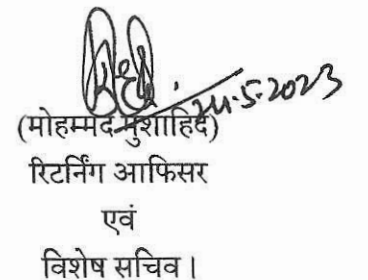 24.5.2023
(मोहम्मद मुशाहिद)
रिटर्निंग आफिसर
एवं
विशेष सचिव।